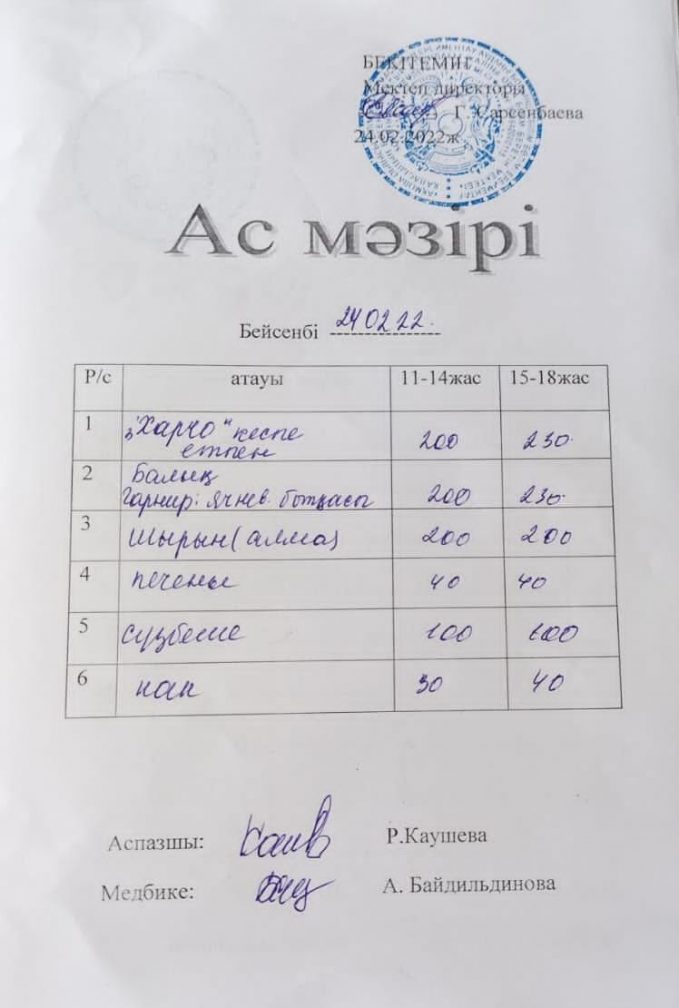 БЕКІТЕМІН
Мектеп директоры
Г. Сарсенбаева
24.02.2022ж
Ас мәзірі
Бейсенбі 24 02 22.
Р/с атауы 11-14жас 15-18жас
1 "Харчо" кеспе етпен 200 230
2 Балық Гарнир: ячнев. ботқасы 200 230
3 Шырын (алма) 200 200
4 печенье 40 40
5 сүзбеше 100 100
6 нан 30 40
Аспазшы: Р.Каушева
Медбике: А. Байдильдинова